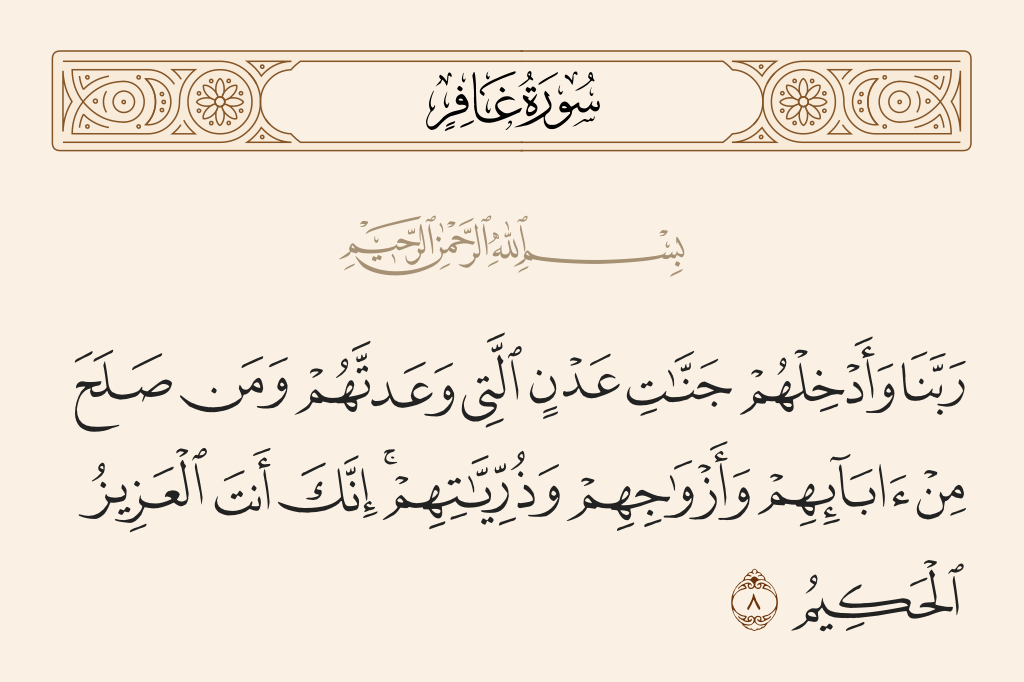 سُورَةُ غَافِرٍ
بِسْمِ ٱللَّهِ ٱلرَّحْمَٰنِ ٱلرَّحِيمِ
رَبَّنَا وَأَدْخِلْهُمْ جَنَّٰتِ عَدْنٍ ٱلَّتِى وَعَدتَّهُمْ وَمَن صَلَحَ
مِنْ ءَابَآئِهِمْ وَأَزْوَٰجِهِمْ وَذُرِّيَّٰتِهِمْ ۚ إِنَّكَ أَنتَ ٱلْعَزِيزُ
ٱلْحَكِيمُ ٨